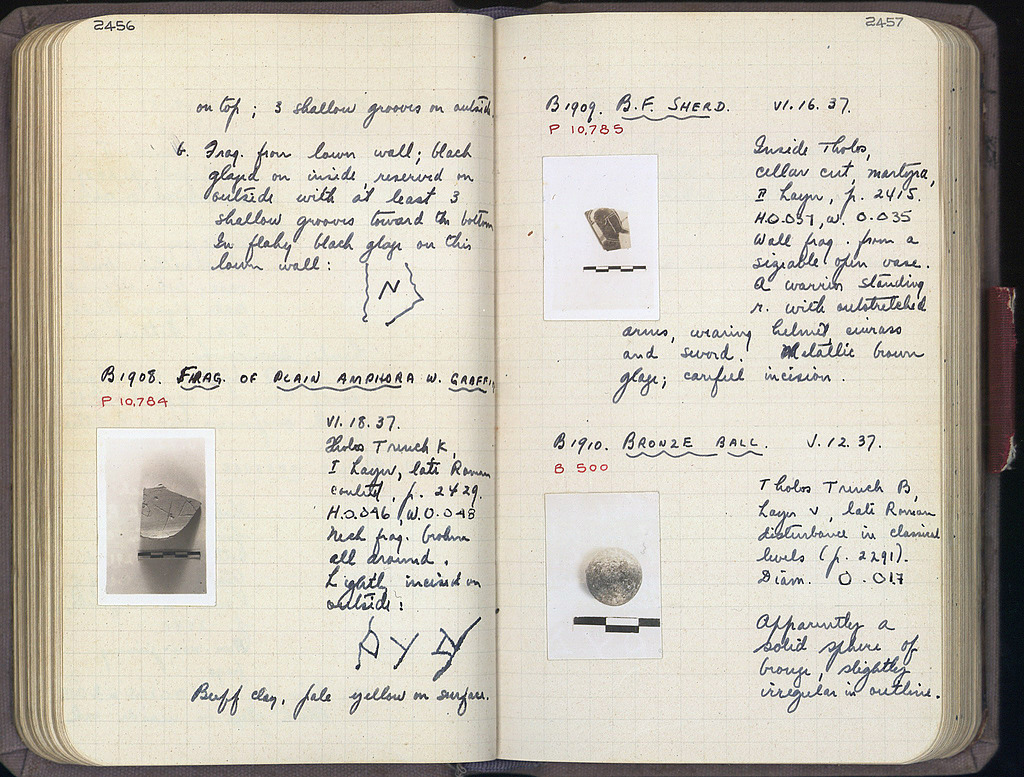 2456
on top; 3 shallow grooves on outside
6. Frag. from lower wall; black
glazed on inside reserved on
outside with at least 3
shallow grooves toward the bottom
In flaky black glaze on this
lower wall:
N
B1908. FRAG. OF PLAIN AMPHORA W. GRAFFI
P 10,784
VI.18.37.
Tholos Trench K,
I Layer, late Roman
context, p. 2429.
H.0.046, W.0.048
Neck frag. broken
all around.
Lightly incised on
outside:
Buff clay, pale yellow on surface.
2457
B1909. B.F. SHERD. VI.16.37.
P 10,785
Inside Tholos,
cellar cut, martyra,
II Layer, p. 2415.
H.0.037, W. 0.035
Wall frag. from a
sizeable open vase.
A warrior standing
r. with outstretched
arms, wearing helmet, cuirass
and sword. Metallic brown
glaze; careful incision.
B1910. BRONZE BALL. V.12.37.
B 500
Tholos Trench B,
Layer V, late Roman
disturbance in classical
levels (p. 2291).
Diam. 0.017
Apparently a
solid sphere of
bronze, slightly
irregular in outline.